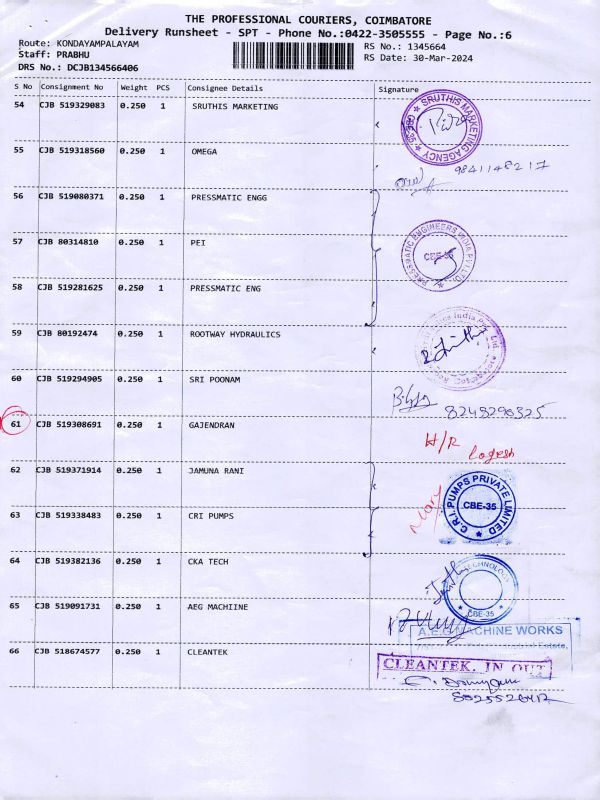 THE PROFESSIONAL COURIERS, COIMBATORE
Delivery Runsheet - SPT - Phone No.:0422-3505555 - Page No.:6
Route: KONDAYAMPALAYAM
RS No.: 1345664
Staff: PRABHU
RS Date: 30-Mar-2024
DRS No.: DCJB134566406
S No Consignment No Weight PCS Consignee Details Signature
54 CJB 519329083 0.250 1 SRUTHIS MARKETING
SRUTHIS MARKETING AGENCY CBE-35
55 CJB 519318560 0.250 1 OMEGA
9841148217
56 CJB 519080371 0.250 1 PRESSMATIC ENGG
57 CJB 80314810 0.250 1 PEI
PRESSMATIC ENGINEERS INDIA PVT LTD. CBE-35
58 CJB 519281625 0.250 1 PRESSMATIC ENG
59 CJB 80192474 0.250 1 ROOTWAY HYDRAULICS
India Pvt. Ltd.
60 CJB 519294905 0.250 1 SRI POONAM
8248290325
61 CJB 519308691 0.250 1 GAJENDRAN
H/R Logesh
62 CJB 519371914 0.250 1 JAMUNA RANI
63 CJB 519338483 0.250 1 CRI PUMPS
C.R.I. PUMPS PRIVATE LIMITED CBE-35
Mary
64 CJB 519382136 0.250 1 CKA TECH
TECHNOLOGY CBE-35
65 CJB 519091731 0.250 1 AEG MACHIINE
A.E.G MACHINE WORKS
Estate,
66 CJB 518674577 0.250 1 CLEANTEK
CLEANTEK. IN OUT